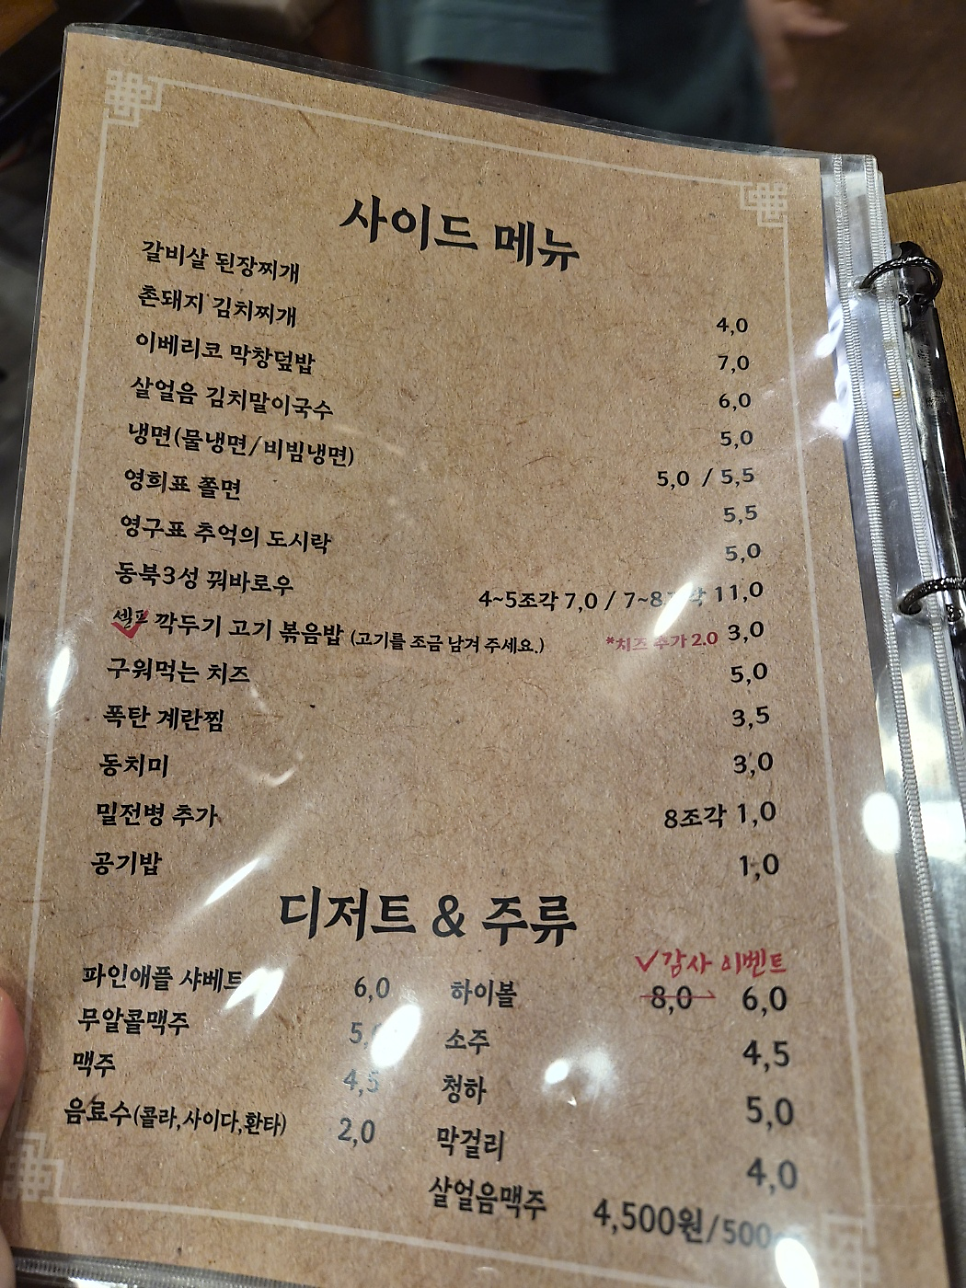 사이드 메뉴
갈비살 된장찌개 4,0
촌돼지 김치찌개 7,0
이베리코 막창덮밥 6,0
살얼음 김치말이국수 5,0
냉면(물냉면/비빔냉면) 5,0 / 5,5
영희표 쫄면 5,5
영구표 추억의 도시락 5,0
동북3성 꿔바로우 4~5조각 7,0 / 7~8조각 11,0
셀프 깍두기 고기 볶음밥 (고기를 조금 남겨 주세요.) *치즈 추가 2.0 3,0
구워먹는 치즈 5,0
폭탄 계란찜 3,5
동치미 3,0
밀전병 추가 8조각 1,0
공기밥 1,0
디저트 & 주류
✓감사 이벤트
파인애플 샤베트 6,0 하이볼 8,0 6,0
무알콜맥주 소주 4,5
맥주 4,5 청하 5,0
음료수(콜라,사이다,환타) 2,0 막걸리 4,0
살얼음맥주 4,500원/500